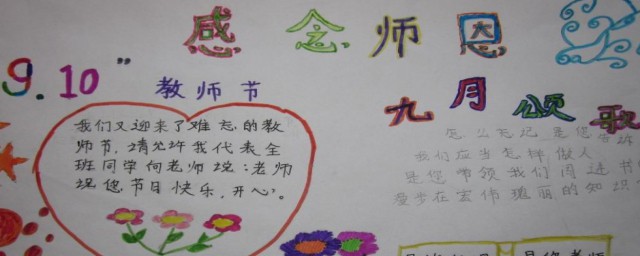 感念师恩
9.10”
教师节
九月颂歌
我们又迎来了难忘的教
师节,请允许我代表全
班同学向老师说:老师
祝您节日快乐,开心。
怎么忘记 是您告诉
我们应当怎样做人
是您带领我们闯进书
步在宏伟瑰丽的知识